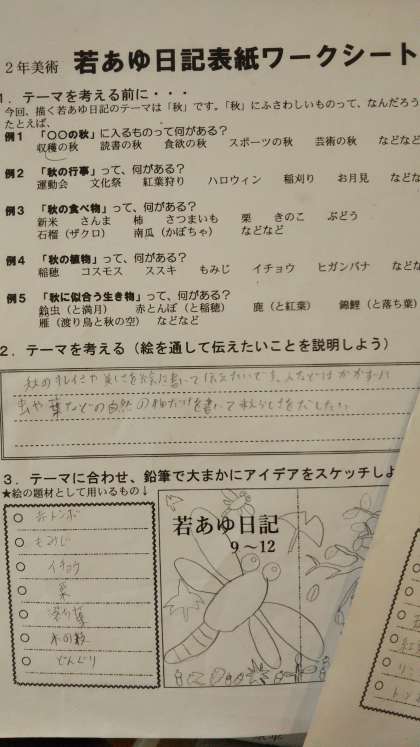 2年美術 若あゆ日記表紙ワークシート
1．テーマを考える前に・・・
今回、描く若あゆ日記のテーマは「秋」です。「秋」にふさわしいものって、なんだろう
たとえば、
例1 「○○の秋」に入るものって何がある？
収穫の秋 読書の秋 食欲の秋 スポーツの秋 芸術の秋 などなど
例2 「秋の行事」って、何がある？
運動会 文化祭 紅葉狩り ハロウィン 稲刈り お月見 などな
例3 「秋の食べ物」って、何がある？
新米 さんま 柿 さつまいも 栗 きのこ ぶどう
石榴（ザクロ） 南瓜（かぼちゃ） などなど
例4 「秋の植物」って、何がある？
稲穂 コスモス ススキ もみじ イチョウ ヒガンバナ などな
例5 「秋に似合う生き物」って、何がある？
鈴虫（と満月） 赤とんぼ（と稲穂） 鹿（と紅葉） 錦鯉（と落ち葉）
雁（渡り鳥と秋の空） などなど
2．テーマを考える（絵を通して伝えたいことを説明しよう）
秋のキレイさや美しさを絵に書いて伝えたいです。人などはかかずに
虫や葉などの自然の物だけを書いて秋らしさをだしたい
3．テーマに合わせ、鉛筆で大まかにアイデアをスケッチしよ
★絵の題材として用いるもの↓
赤トンボ
もみじ
イチョウ
栗
落ち葉
木の枝
どんぐり
若あゆ日記
9～12